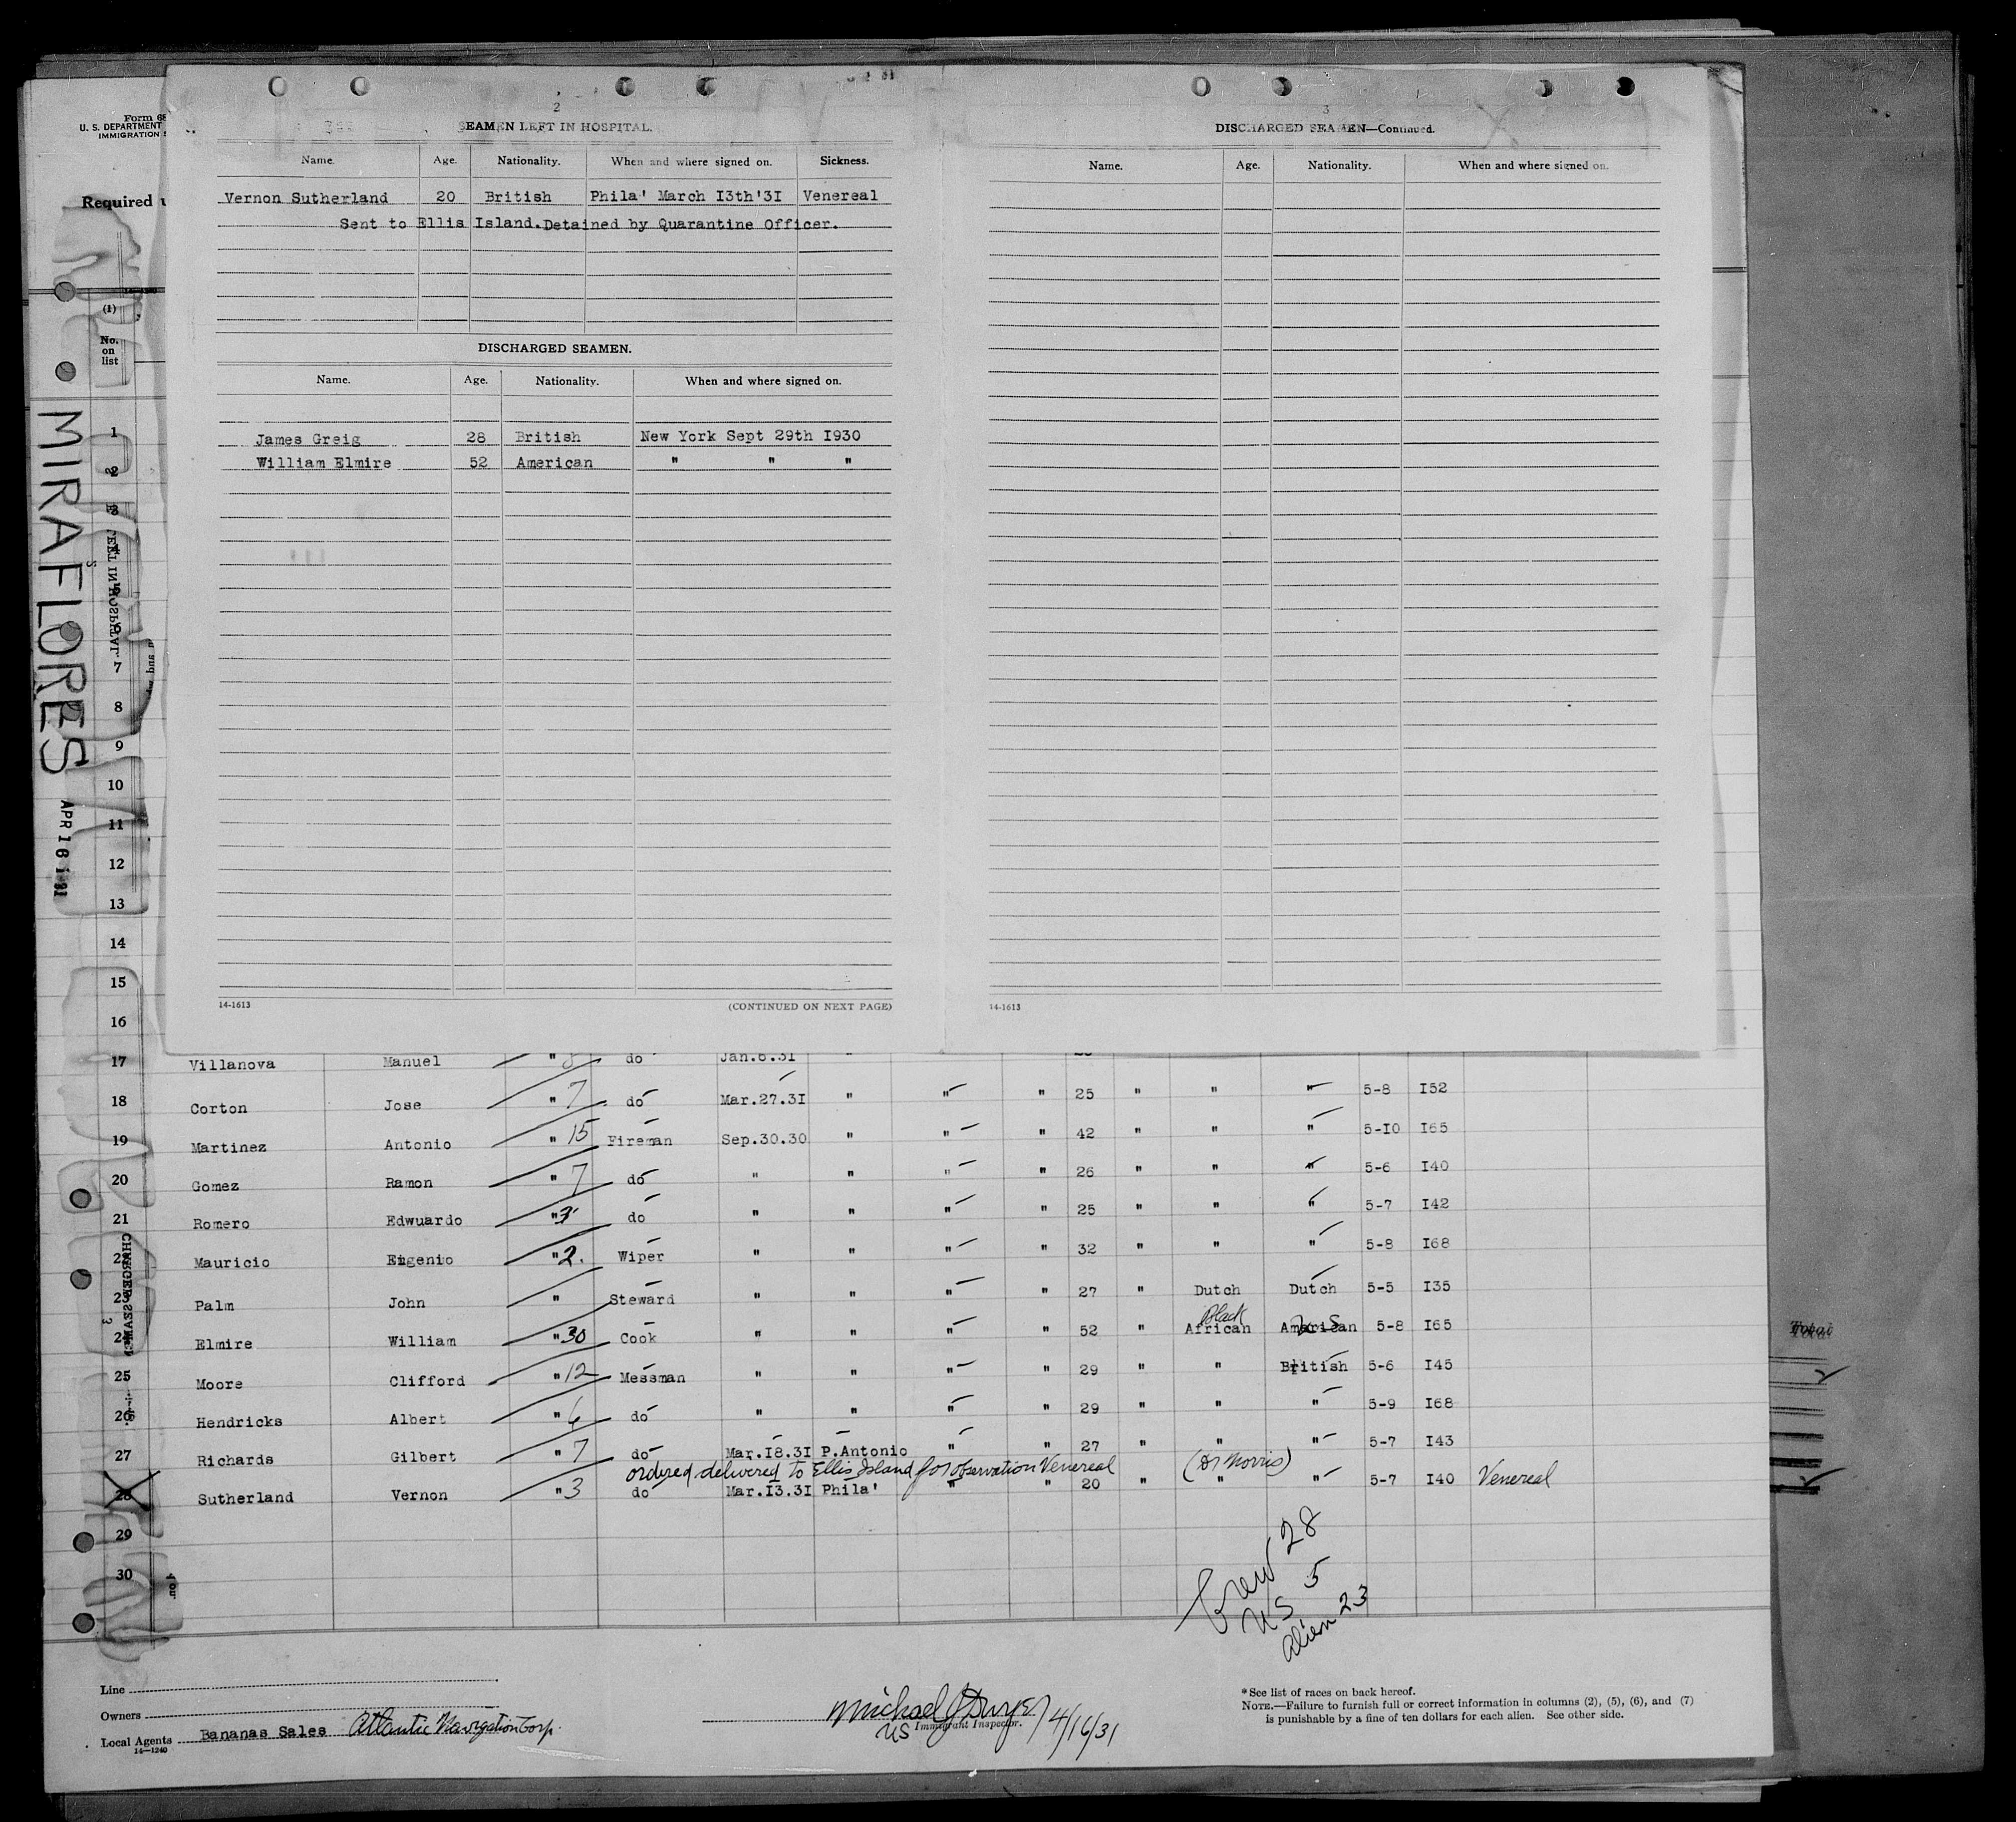 Form 68
U. S. DEPARTMENT
IMMIGRATION
Required
(1)
No.
on
list
MIRAFLORES
APR 16 1931
2
SEAMEN LEFT IN HOSPITAL.
Name. Age. Nationality. When and where signed on. Sickness.
Vernon Sutherland 20 British Phila' March I3th'3I Venereal
Sent to Ellis Island. Detained by Quarantine Officer.
DISCHARGED SEAMEN.
Name. Age. Nationality. When and where signed on.
James Greig 28 British New York Sept 29th I930
William Elmire 52 American " " "
14-1613 (CONTINUED ON NEXT PAGE)
3
DISCHARGED SEAMEN—Continued.
Name. Age. Nationality. When and where signed on.
14-1613
1
2
3
7
8
9
10
11
12
13
14
15
16
17 Villanova Manuel " do Jan.6.3I "
18 Corton Jose " 7 do Mar.27.3I " " " 25 " " " 5-8 I52
19 Martinez Antonio " 15 Fireman Sep.30.30 " " " 42 " " " 5-I0 I65
20 Gomez Ramon " 7 do " " " " 26 " " " 5-6 I40
21 Romero Edwuardo " 3 do " " " " 25 " " " 5-7 I42
22 Mauricio Eugenio " 2. Wiper " " " " 32 " " " 5-8 I68
23 Palm John " Steward " " " " 27 " Dutch Dutch 5-5 I35
Black
24 Elmire William " 30 Cook " " " " 52 " African American US 5-8 I65
25 Moore Clifford " 12 Messman " " " " 29 " " British 5-6 I45
26 Hendricks Albert " 6 do " " " " 29 " " " 5-9 I68
27 Richards Gilbert " 7 do Mar.I8.3I P.Antonio " " 27 " " " 5-7 I43
ordered delivered to Ellis Island for observation Venereal (Dr Norris)
28 Sutherland Vernon " 3 do Mar.I3.3I Phila' " " 20 " " " 5-7 I40 Venereal
29
30
Crew 28
US 5
Alien 23
Total
Line
Owners
Local Agents Bananas Sales Atlantic Navigation Corp.
14—1240
Michael J Dwyer 4/16/31
US Immigrant Inspector.
*See list of races on back hereof.
NOTE.—Failure to furnish full or correct information in columns (2), (5), (6), and (7)
is punishable by a fine of ten dollars for each alien. See other side.